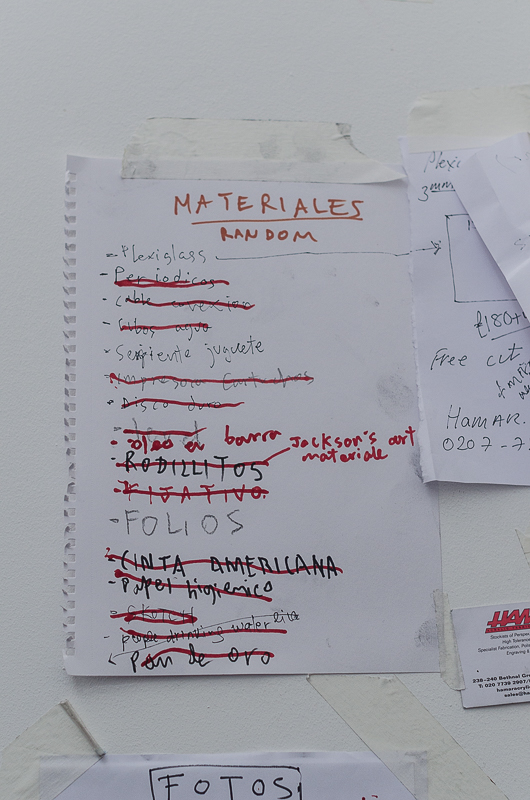 MATERIALES
RANDOM
- Plexiglass
- Periodicos
- Cable conexion
- Tubos agua
- Serpiente juguete
- Impresora Cartuchos
- Disco duro
- oleo en barra
Jackson's art
materiale
- RODILLITOS
- FIJATIVO
- FOLIOS
- CINTA AMERICANA
- Papel higienico
- people drinking water
Pan de oro
Plexi
3mm
£180+
Free cut
HAMAR.
0207-7.
HAM
Stockists of Perspex
High Tolerance
Specialist Fabrication, Poli
Engraving &
236-240 Bethnal Gre
T: 020 7739 2907/
hamaracryli
sales@ha
FOTOS